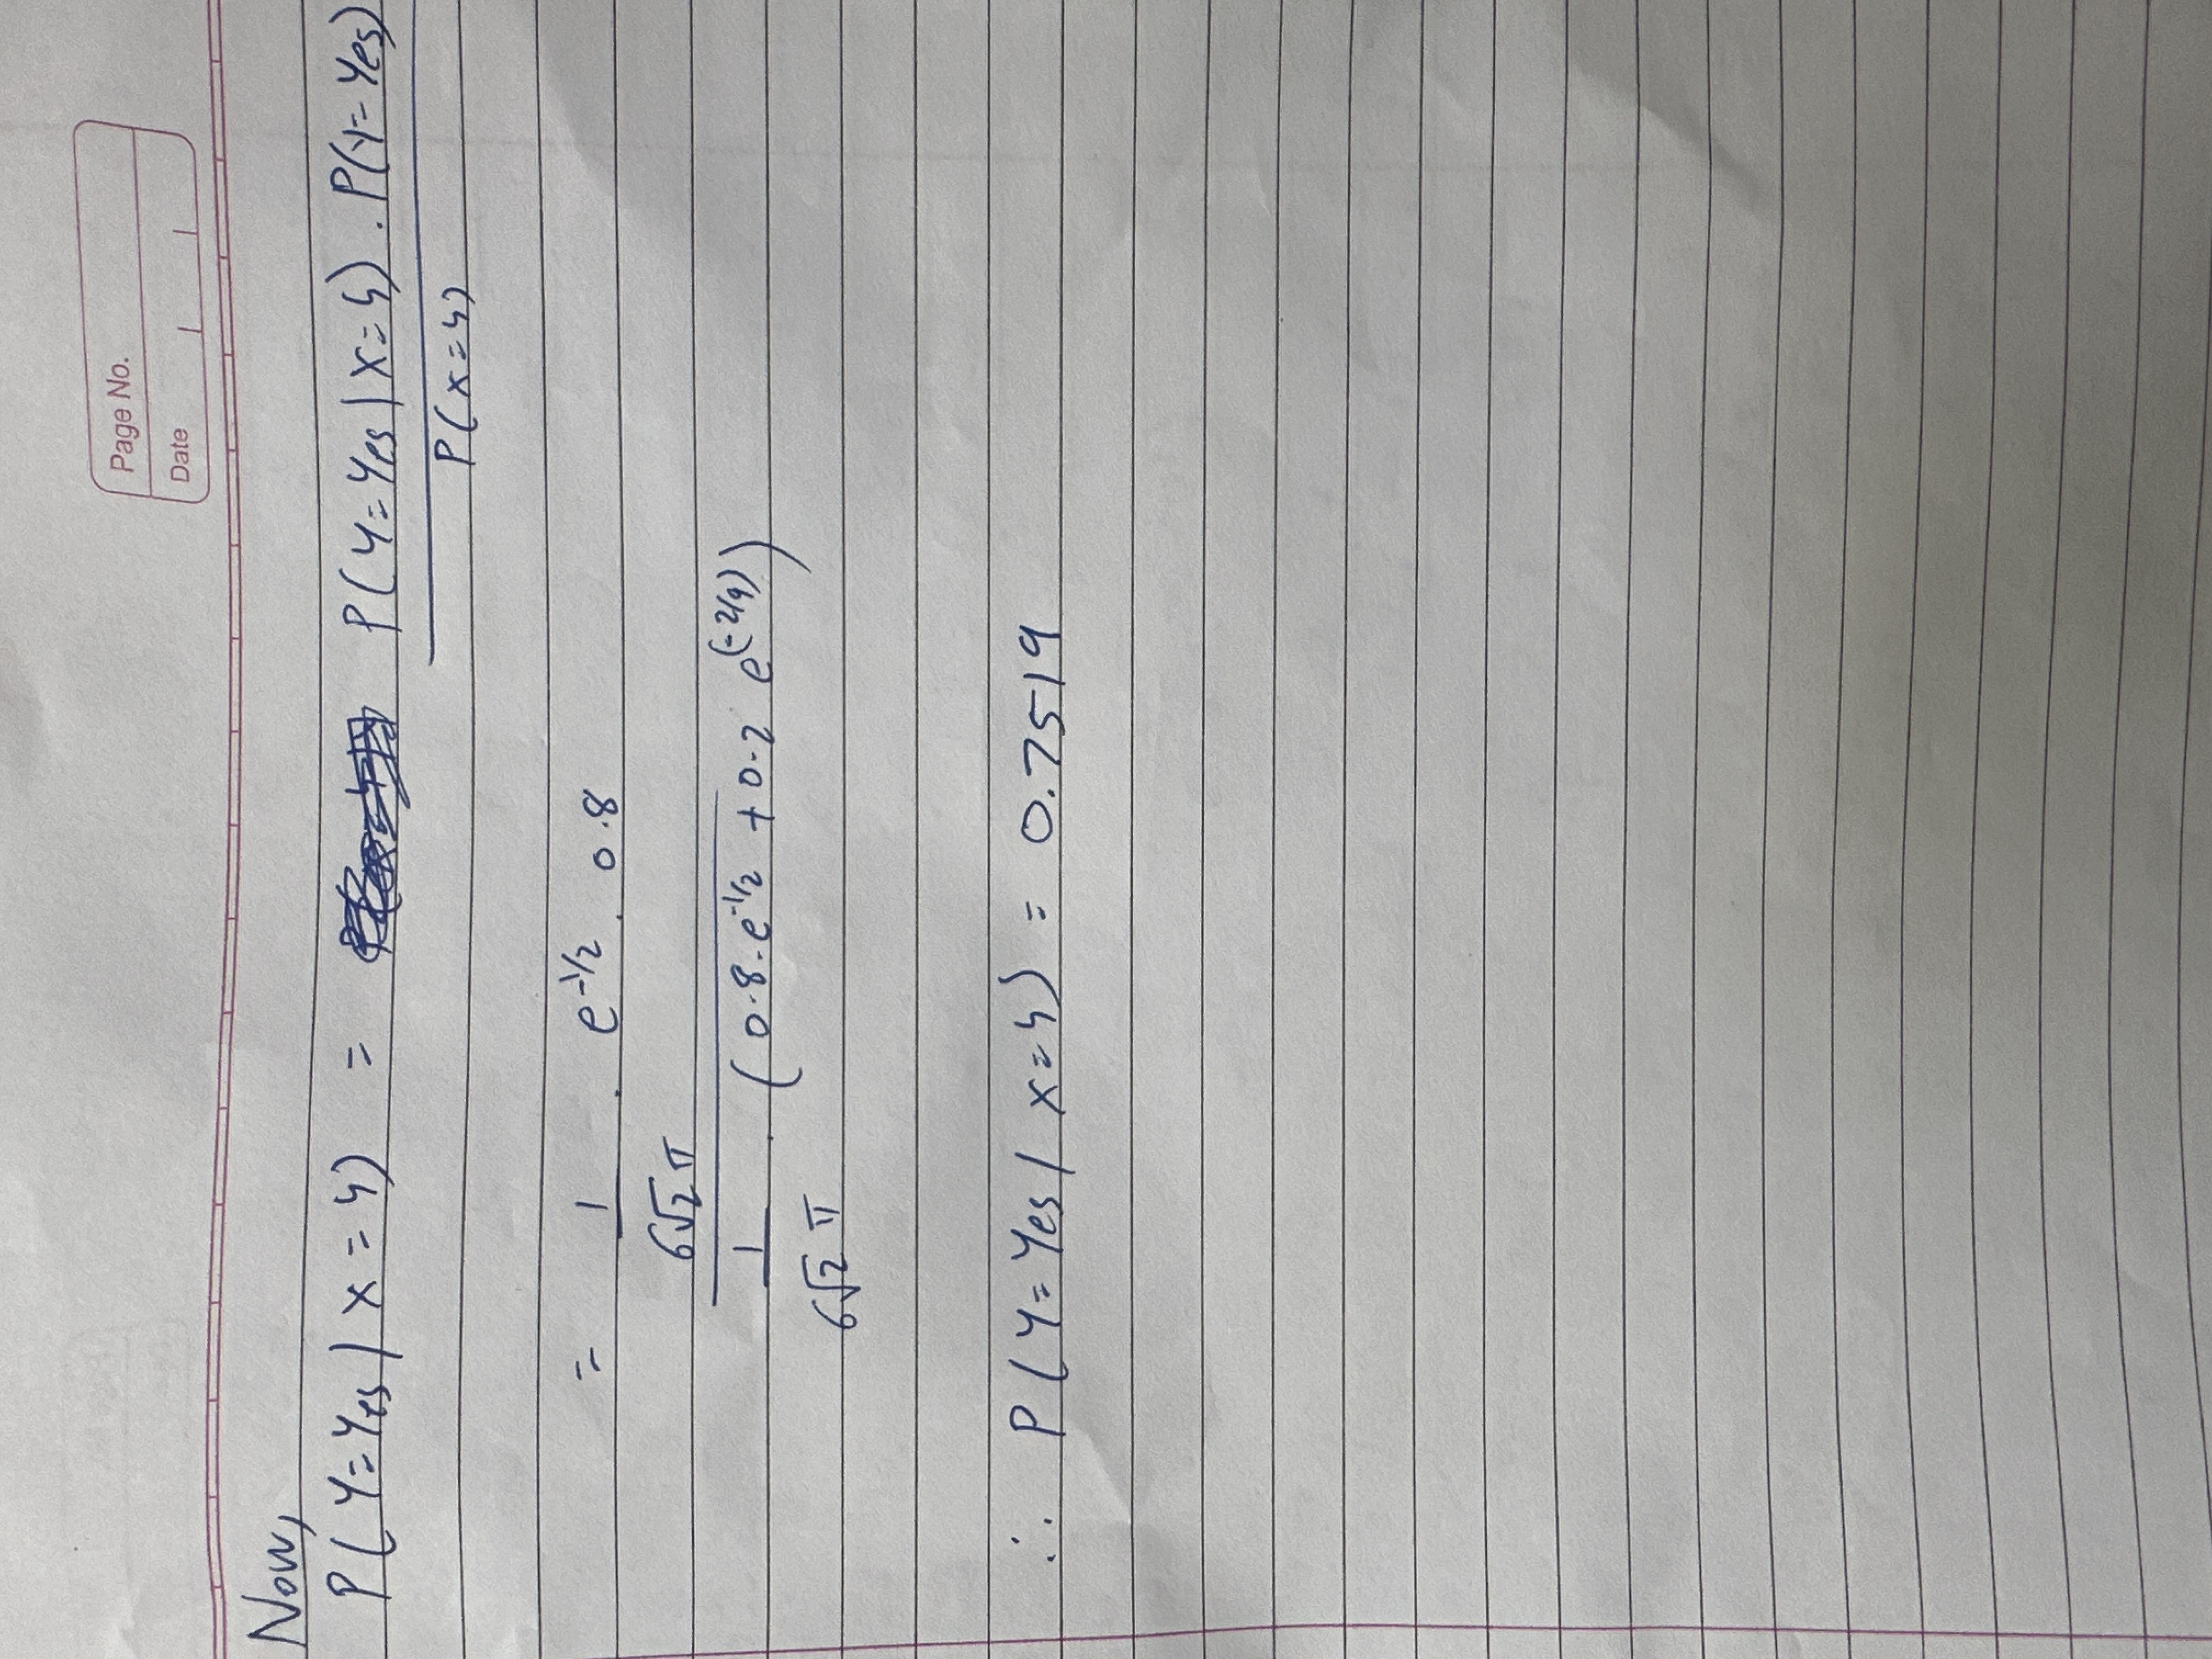 Page No.
Date
Now,
P(Y=Yes | X=4) = P(Y=Yes | X=4) . P(Y=Yes)
P(X=4)
= 1 . e^-1/2 . 0.8
6√2π
1 . (0.8.e^-1/2 + 0.2 e^(-2/9))
6√2π
∴ P(Y=Yes | X=4) = 0.7519